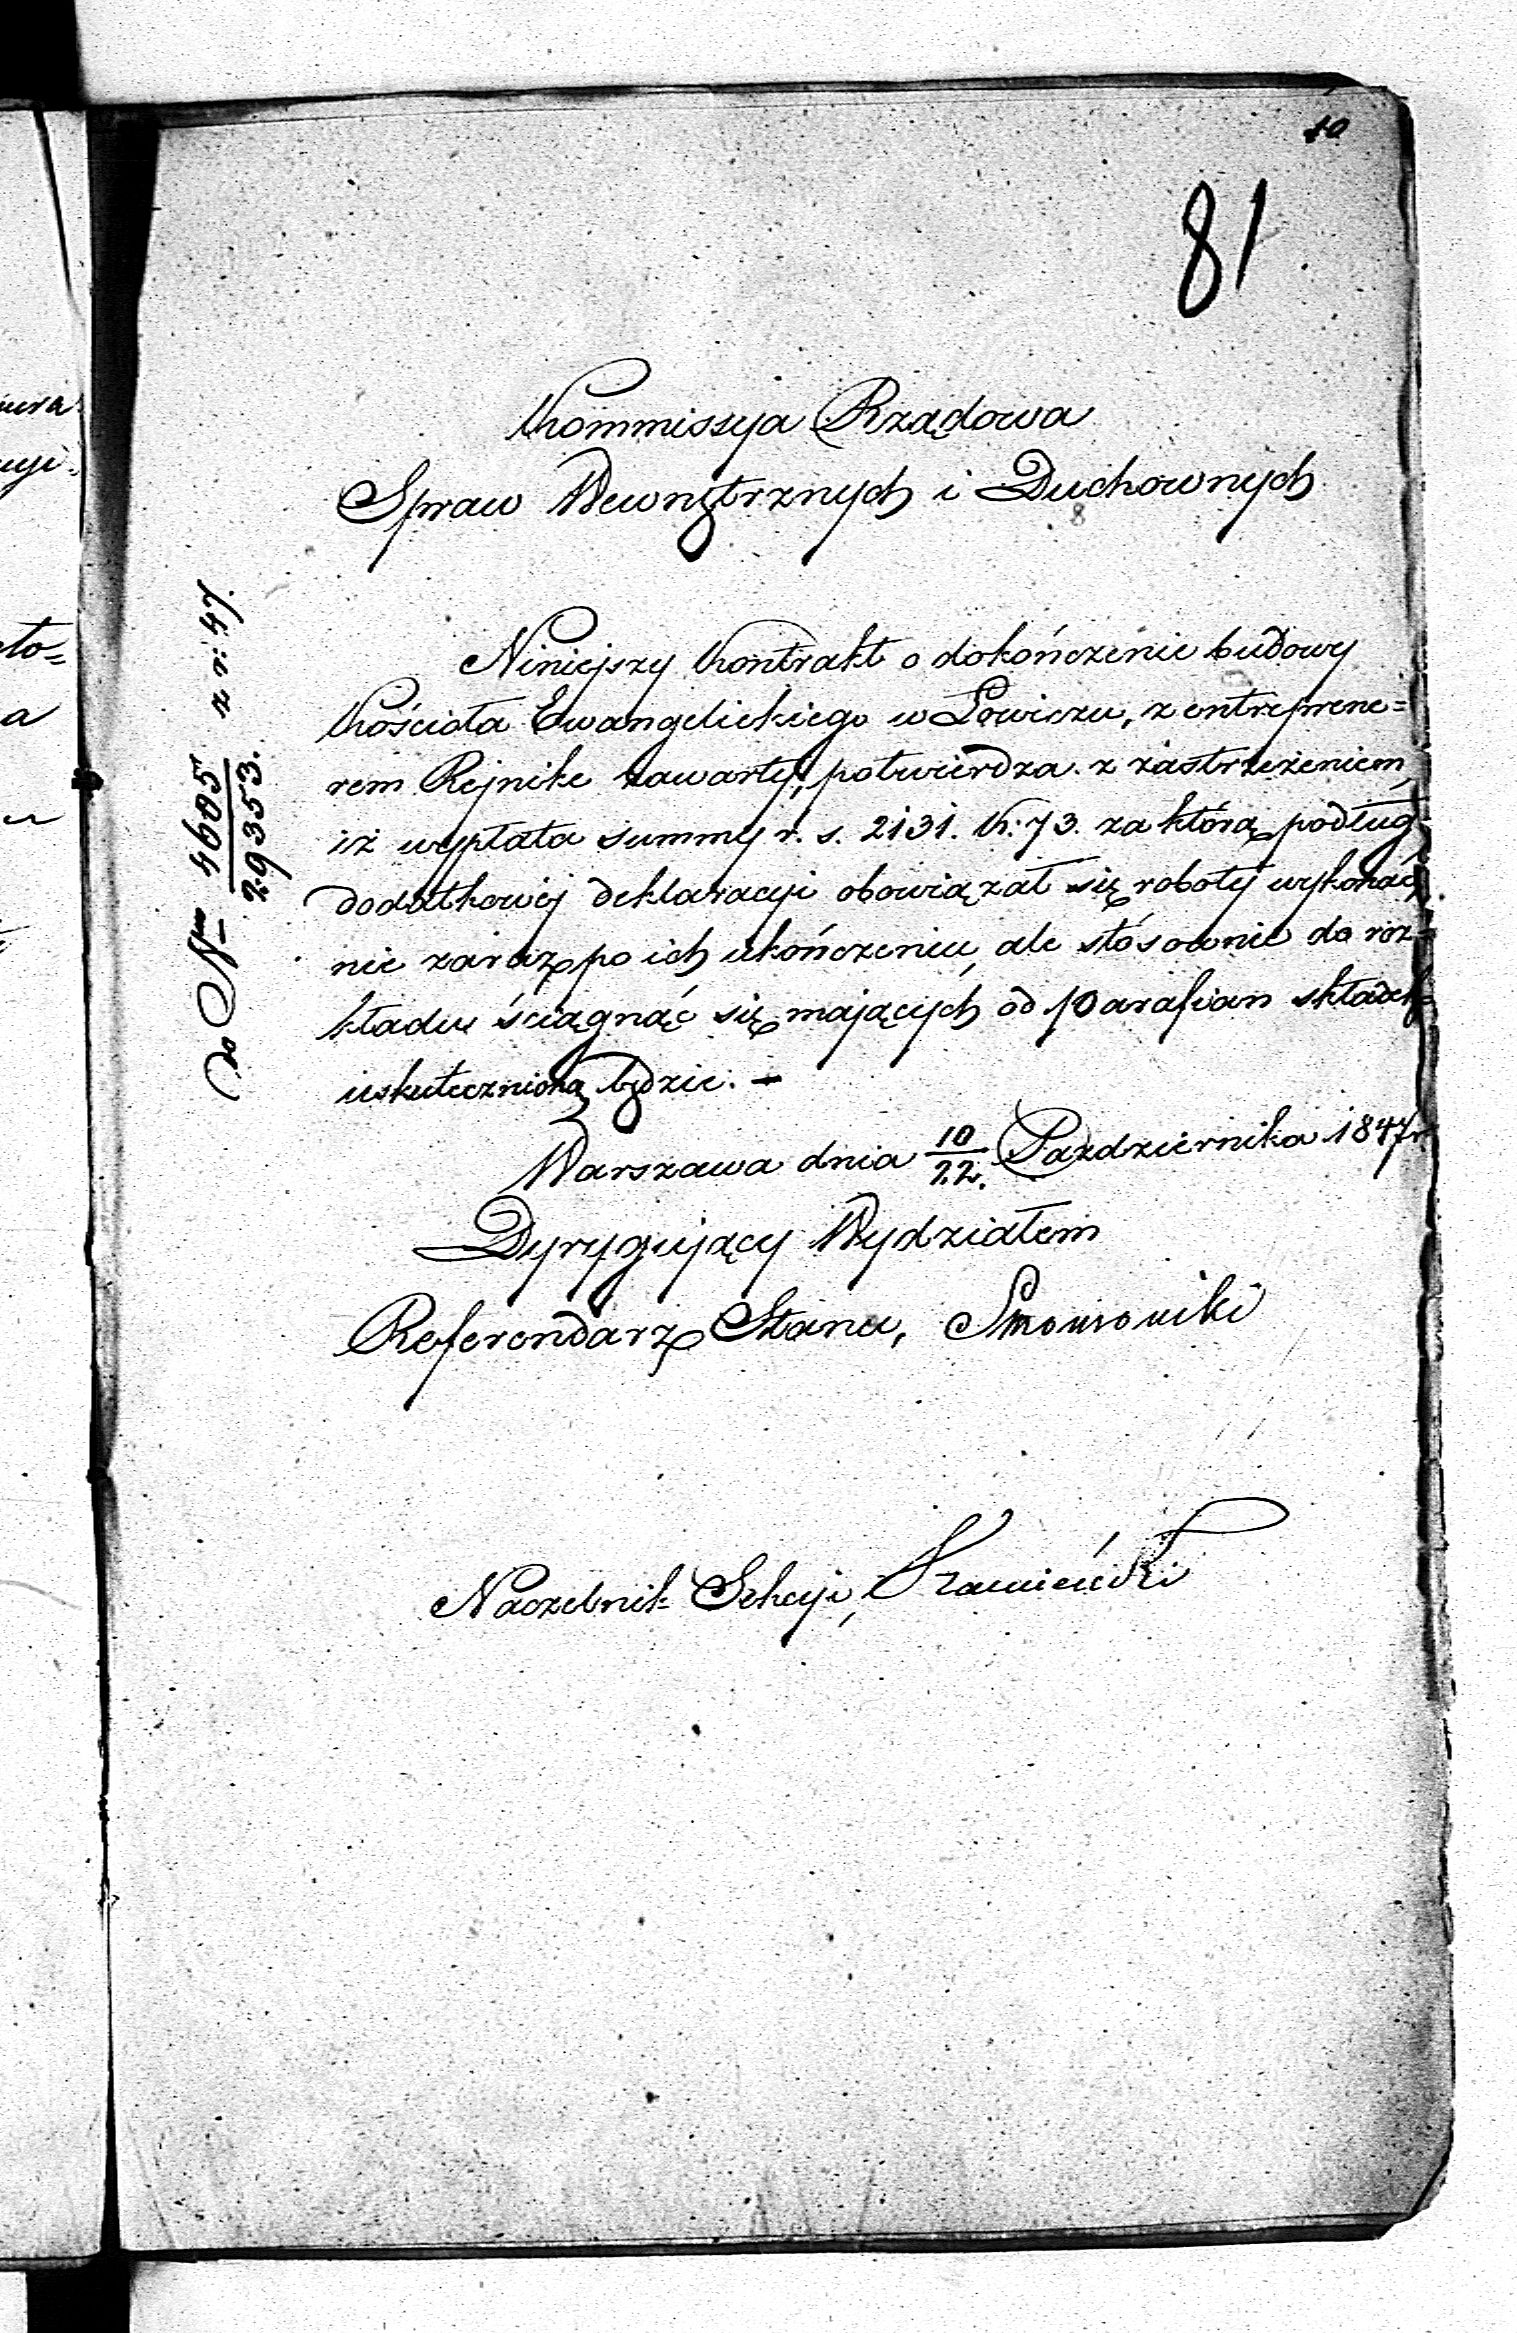 10
81
Kommissyja Rządowa
Spraw Wewnętrznych i Duchownych
do Nru 4605/29353. z r: 47.
Niniejszy Kontrakt o dokończenie budowy
Kościoła Ewangelickiego w Łowiczu, z entreprene=
rem Rejnike zawarty, potwierdza z zastrzeżeniem,
iż wypłata summy r. s. 2131. k: 73. za którą podług
dodatkowéj deklaracyi obowiązał się roboty wykonać,
nie zaraz po ich ukończeniu, ale stósownie do roz=
kładu ściągnąć się mających od Parafian składek
uskutecznioną będzie. —
Warszawa dnia 10/22. Pazdziernika 1847 r
Dyrygujący Wydziałem
Referendarz Stanu,
Naczelnik Sekcyi,